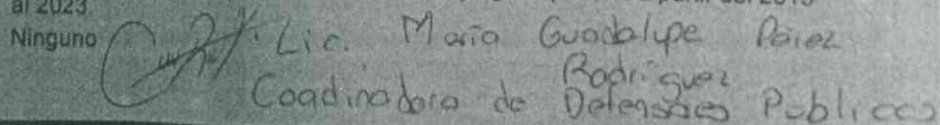 al 2023.
Ninguno
Lic. María Guadalupe Pérez
Rodríguez
Coadinadora de Defensores Publicos